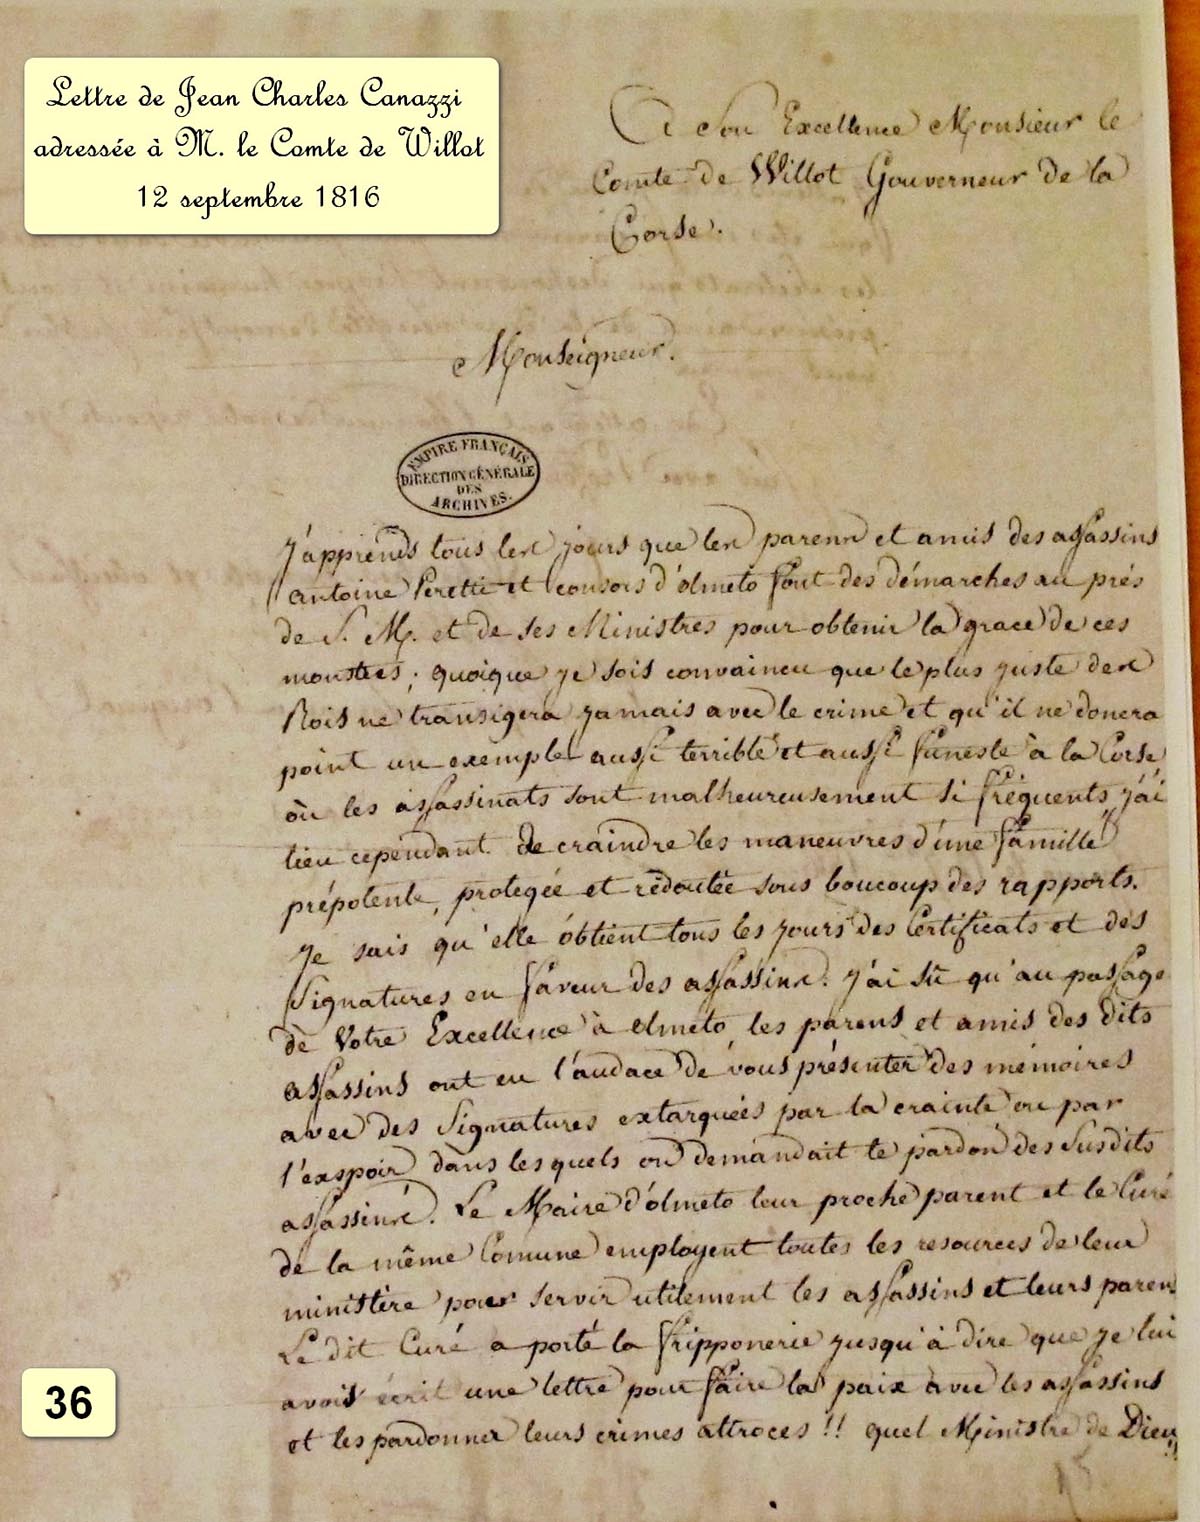 Lettre de Jean Charles Canazzi
adressée à M. le Comte de Willot
12 septembre 1816
A Son Excellence Monsieur le
Comte de Willot Gouverneur de la
Corse.
Monseigneur.
EMPIRE FRANÇAIS
DIRECTION GÉNÉRALE
DES
ARCHIVES.
J'apprends tous les jours que les parens et amis des assassins
antoine Peretti et consors d'ólmeto font des démarches au prés
de S. M. et de ses Ministres pour obtenir la grace de ces
monstres; quoique je sois convaincu que le plus juste des
Rois ne transigera jamais avec le crime et qu'il ne donera
point un exemple aussi terrible et aussi funeste à la Corse
où les assassinats sont malheureusement si fréquents j'ai
lieu cependant de craindre les maneuvres d'une famille
prépotente, protegée et rédoutée sous boucoup des rapports.
Je sais qu'elle óbtient tous les jours des Certificats et des
Signatures en faveur des assassins. J'ai sû qu'au passage
de Votre Excellence à olmeto les parens et amis des dits
assassins ont eu l'audace de vous présenter des mémoires
avec des Signatures extarquées par la crainte ou par
l'exspoir dans les quels on demandait le pardon des Susdits
assassins. Le Maire d'ólmeto leur proche parent et le Curé
de la même Comune employent toutes les resources de leur
ministère pour servir utilement les assassins et leurs paren
Le dit Curé a porté la fripponerie jusqu'à dire que je lui
avois écrit une lettre pour faire la paix avec les assassins
et les pardonner leurs crimes attroces !! quel Ministre de Dieu
36